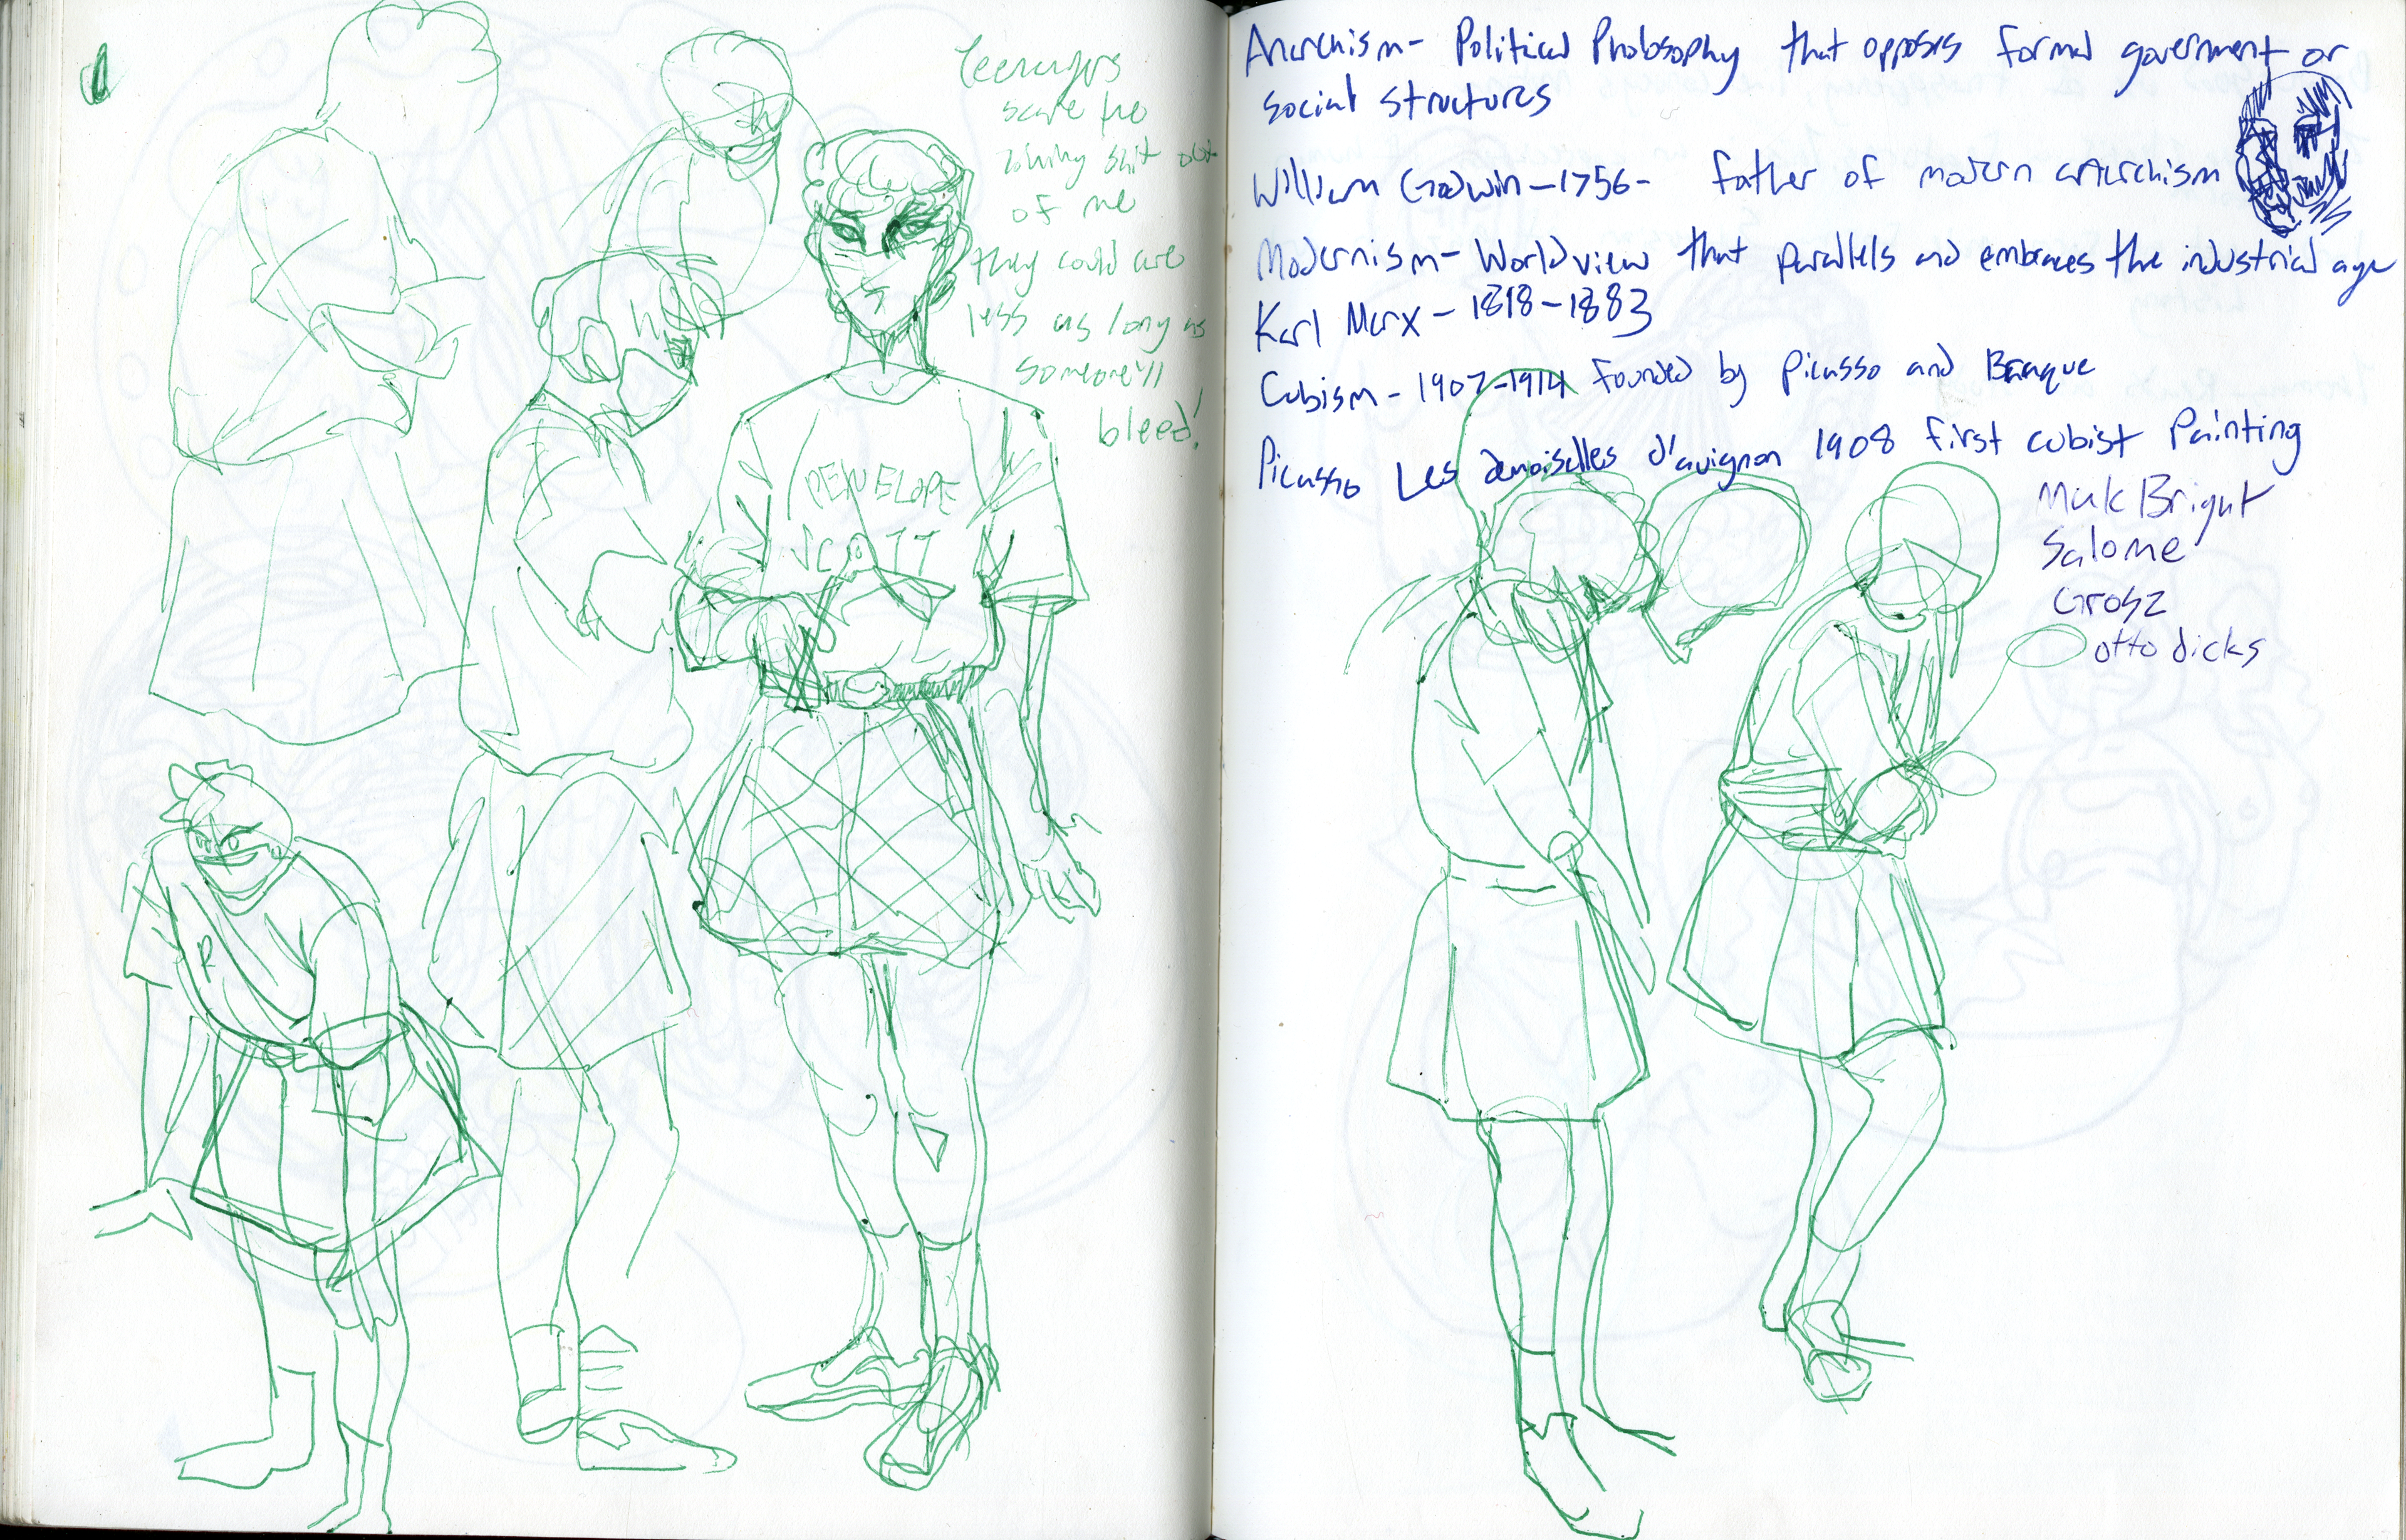 Teenagers
scare the
living shit out
of me
they could care
less as long as
someone'll
bleed!
PENELOPE
SCOTT
R
Anarchism- Political Philosophy that opposes formal government or
social structures
William Godwin-1756- father of modern anarchism
Modernism- World view that parallels and embraces the industrial age
Karl Marx - 1818-1883
Cubism - 1907-1914 founded by Picasso and Braque
Picasso Les demoiselles d'avignon 1908 first cubist Painting
Bright
Salome
Grosz
otto dicks